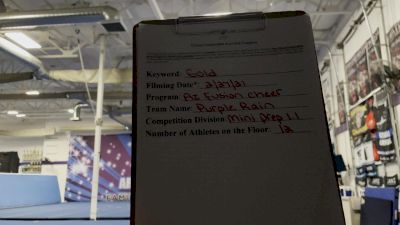 Keyword: Gold
Filming Date: 2/27/21
Program: Az Fusion Cheer
Team Name: Purple Rain
Competition Division: Mini Prep 1.1
Number of Athletes on the Floor: 12